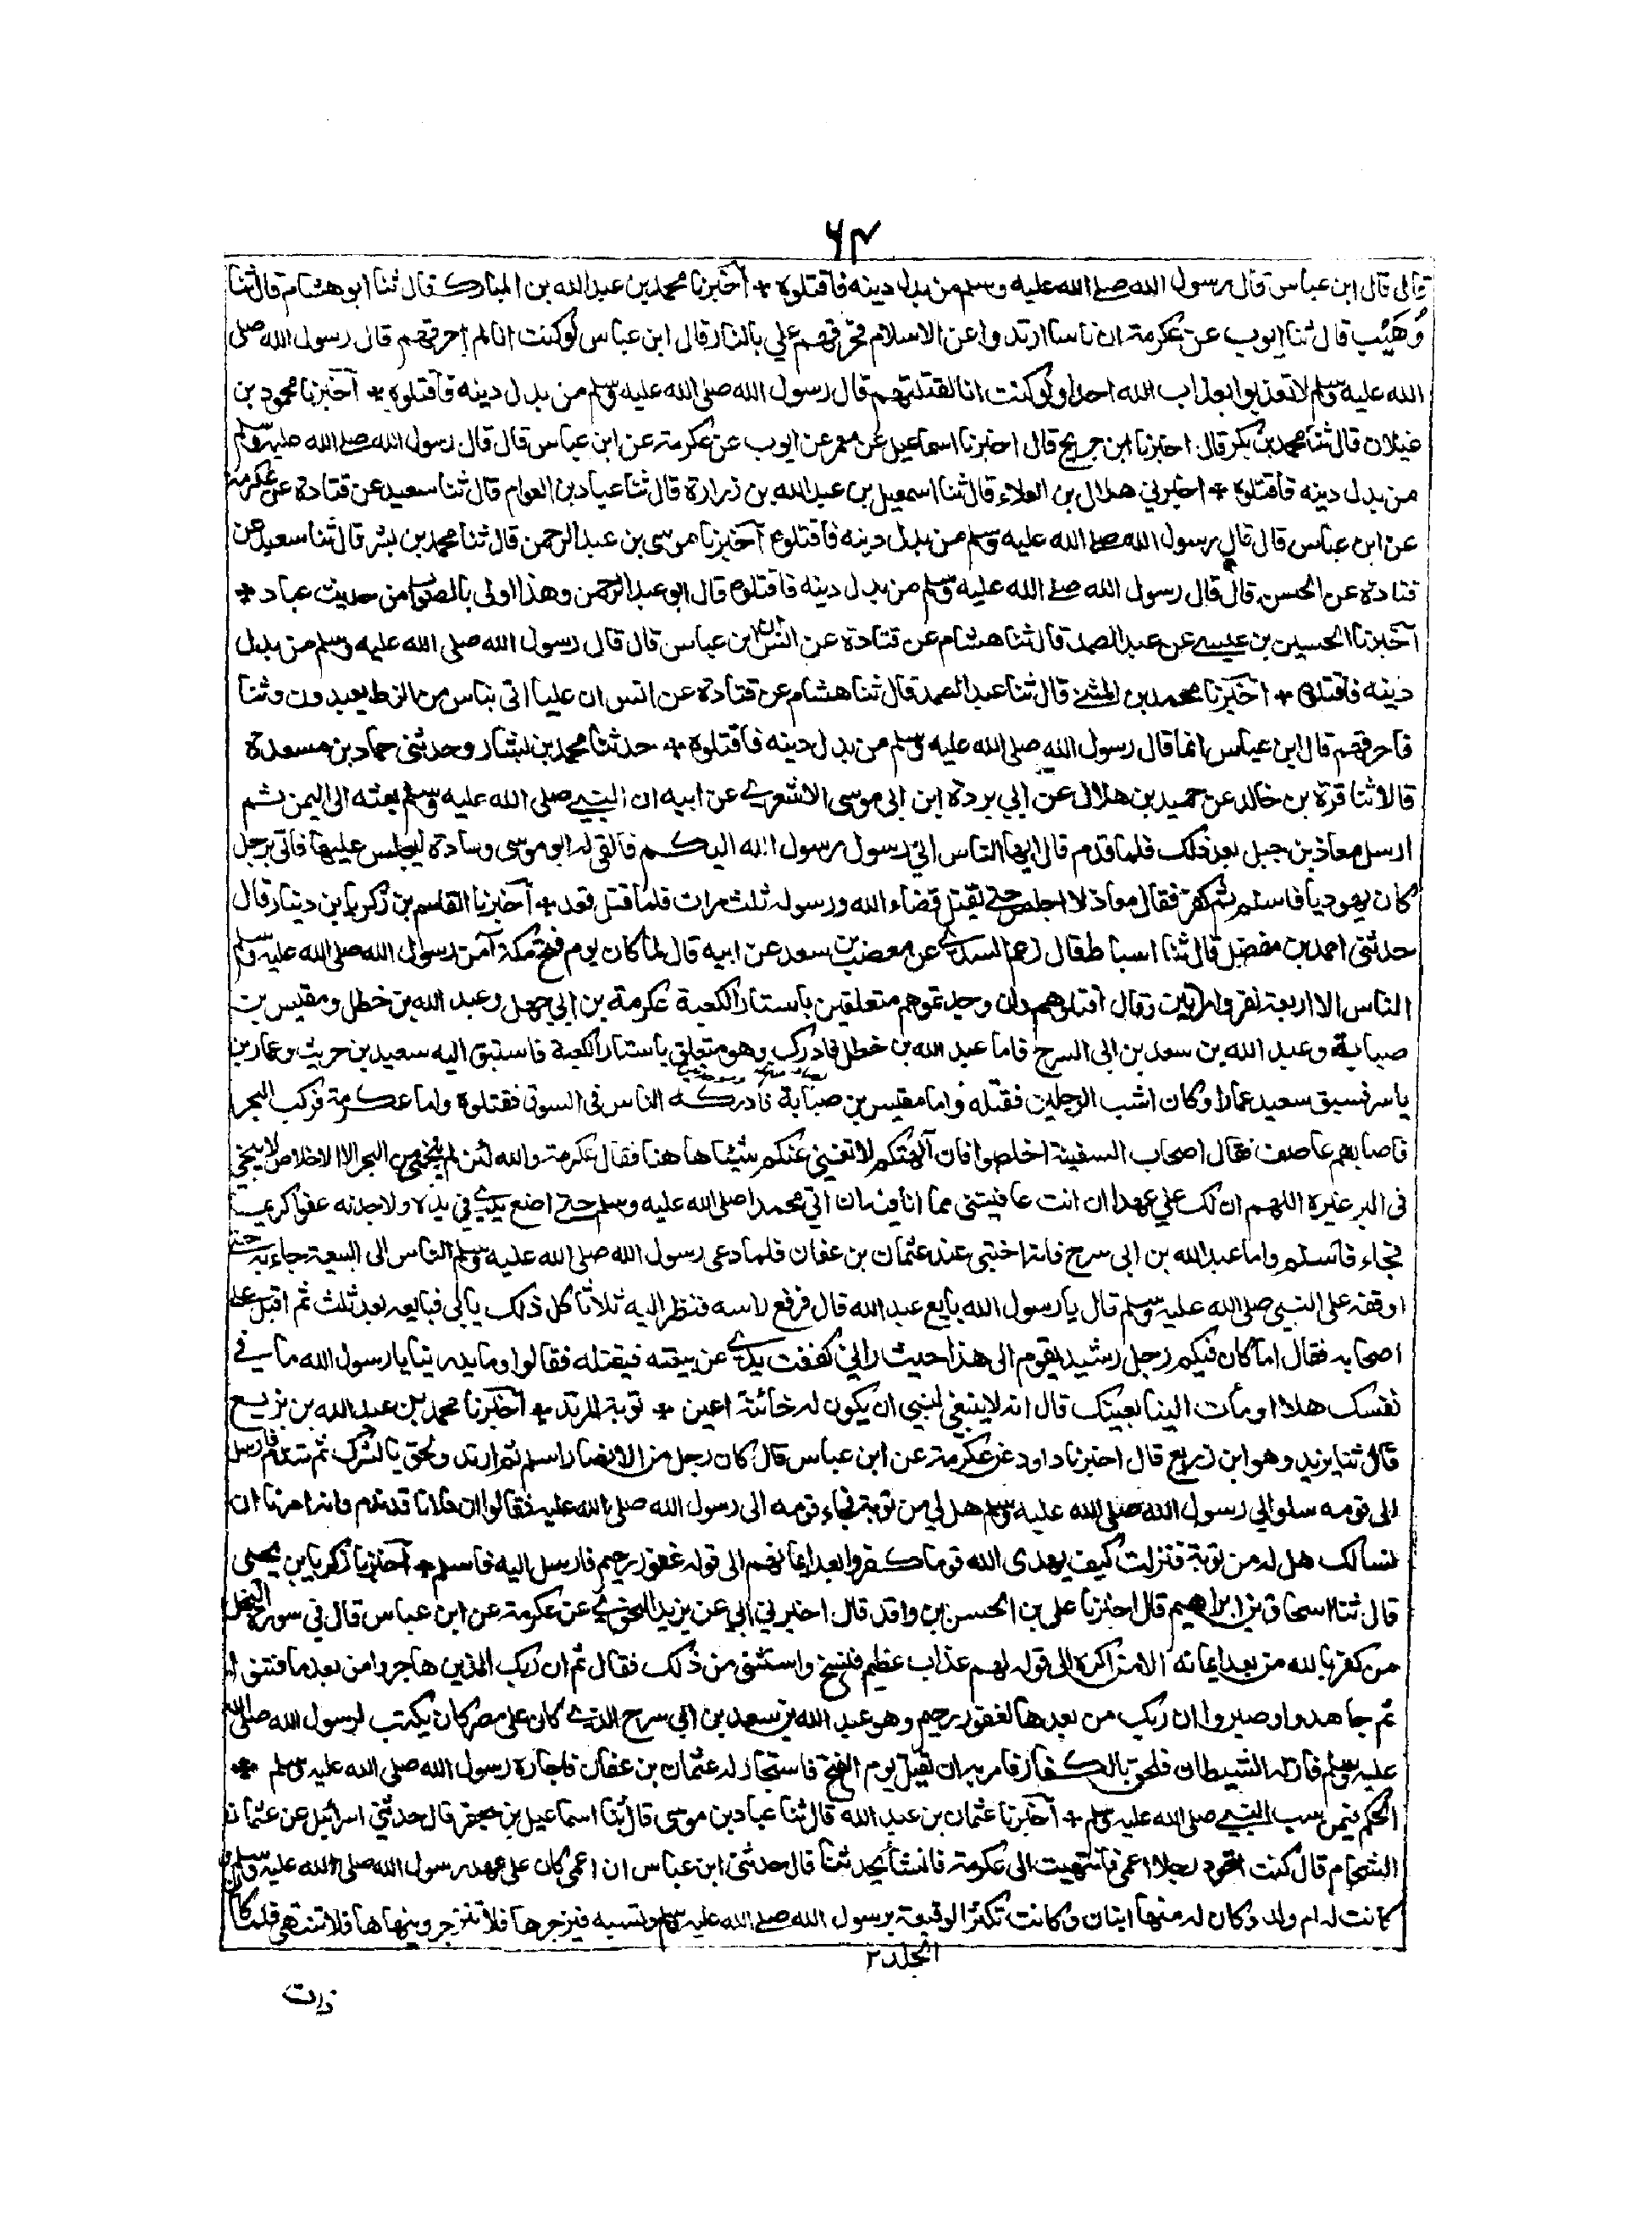 ۶۴
قال قال ابن عباس قال رسول الله صلے الله عليه وسلم من بدل دينه فاقتلوه * اخبرنا محمد بن عبد الله بن المبارك قال ثنا ابو هشام قال ثنا
وُهَيْب قال ثنا ايوب عن عكرمة ان ناسا ارتدوا عن الاسلام فحرقهم علي بالنار قال ابن عباس لو كنت انا لم احرقهم قال رسول الله صلى
الله عليه وسلم لا تعذبوا بعذاب الله احدا ولو كنت انا لقتلتهم قال رسول الله صلى الله عليه وسلم من بدل دينه فاقتلوه * اخبرنا محمود بن
غيلان قال ثنا محمد بن بكر قال اخبرنا ابن جريج قال اخبرنا اسماعيل عن معمر عن ايوب عن عكرمة عن ابن عباس قال قال رسول الله صلے الله عليه وسلم
من بدل دينه فاقتلوه * اخبرني هلال بن العلاء قال ثنا اسمعيل بن عبد الله بن زرارة قال ثنا عباد بن العوام قال ثنا سعيد عن قتادة عن عكرمة
عن ابن عباس قال قال رسول الله صلے الله عليه وسلم من بدل دينه فاقتلوه اخبرنا موسى بن عبد الرحمن قال ثنا محمد بن بشر قال ثنا سعيد عن
قتادة عن الحسن قال قال رسول الله صلے الله عليه وسلم من بدل دينه فاقتلوه قال ابو عبد الرحمن وهذا اولى بالصواب من حديث عباد *
اخبرنا الحسين بن عيسے عن عبد الصمد قال ثنا هشام عن قتادة عن انس ان ابن عباس قال قال رسول الله صلى الله عليه وسلم من بدل
دينه فاقتلوه * اخبرنا محمد بن المثنے قال ثنا عبد الصمد قال ثنا هشام عن قتادة عن انس ان عليا اتى بناس من الزط يعبدون وثنا
فاحرقهم قال ابن عباس انما قال رسول الله صلى الله عليه وسلم من بدل دينه فاقتلوه * حدثنا محمد بن بشار وحدثنى حماد بن مسعدة
قالا ثنا قرة بن خالد عن حميد بن هلال عن ابي بردة ابن ابي موسى الاشعرے عن ابيه ان النبي صلى الله عليه وسلم بعثه الى اليمن ثم
ارسل معاذ بن جبل بعد ذلك فلما قدم قال ايها الناس اني رسول رسول الله اليكم فالقى له ابو موسى وسادة ليجلس عليها فاتى برجل
كان يهوديا فاسلم ثم كفر فقال معاذ لا اجلس حتى يقتل قضاء الله ورسوله ثلث مرات فلما قتل قعد * اخبرنا القاسم بن زكريا بن دينار قال
حدثنى احمد بن مفضل قال ثنا اسباط قال زعم السدے عن مصعب بن سعد عن ابيه قال لما كان يوم فتح مكة آمن رسول الله صلى الله عليه وسلم
الناس الا اربعة نفر وامرأتين وقال اقتلوهم وان وجدتموهم متعلقين باستار الكعبة عكرمة بن ابي جهل وعبد الله بن خطل ومقيس بن
صبابة وعبد الله بن سعد بن ابى السرح فاما عبد الله بن خطل فادرك وهو متعلق باستار الكعبة فاستبق اليه سعيد بن حريث وعمار بن
ياسر فسبق سعيد عمارا وكان اشب الرجلين فقتله واما مقيس بن صبابة فادركه الناس فى السوق فقتلوه واما عكرمة فركب البحر
فاصابهم عاصف فقال اصحاب السفينة اخلصوا فان آلهتكم لا تغني عنكم شيئا هاهنا فقال عكرمة والله لئن لم ينجني من البحر الا الاخلاص لا ينجي
فى البر غيره اللهم ان لك علي عهدا ان انت عافيتنى مما انا فيه ان اتي محمدا صلى الله عليه وسلم حتے اضع يدے في يده ولاجدنه عفوا كريما
فجاء فاسلم واما عبد الله بن ابى سرح فانه اختبى عند عثمان بن عفان فلما دعى رسول الله صلى الله عليه وسلم الناس الى البيعة جاء به حتے
اوقفه على النبي صلى الله عليه وسلم قال يا رسول الله بايع عبد الله قال فرفع راسه فنظر اليه ثلاثا كل ذلك يأبى فبايعه بعد ثلث ثم اقبل علے
اصحابه فقال اما كان فيكم رجل رشيد يقوم الى هذا حيث راني كففت يدے عن بيعته فيقتله فقالوا وما يدرينا يا رسول الله ما في
نفسك هلا اومأت الينا بعينك قال انه لا ينبغى لنبي ان يكون له خائنة اعين * توبة المرتد * اخبرنا محمد بن عبد الله بن بزيع
قال ثنا يزيد وهو ابن زريع قال اخبرنا داود عن عكرمة عن ابن عباس قال كان رجل من الانصار اسلم ثم ارتد ولحق بالشرك ثم تندم فارسل
الى قومه سلوا لي رسول الله صلى الله عليه وسلم هل لي من توبة فجاء قومه الى رسول الله صلى الله عليه فقالوا ان فلانا قد ندم وانه امرنا ان
نسالك هل له من توبة فنزلت كيف يهدى الله قوما كفروا بعد ايمانهم الى قوله غفور رحيم فارسل اليه فاسلم * اخبرنا زكريا بن يحيى
قال ثنا اسحاق بن ابراهيم قال اخبرنا على بن الحسن بن واقد قال اخبرني ابي عن يزيد النحوي عن عكرمة عن ابن عباس قال في سورة النحل
من كفر بالله من بعد ايمانه الا من اكره الى قوله لهم عذاب عظيم فنسخ واستثنى من ذلك فقال ثم ان ربك للذين هاجروا من بعد ما فتنوا
ثم جاهدوا وصبروا ان ربك من بعدها لغفور رحيم وهو عبد الله بن سعد بن ابي سرح الذے كان على مصر كان يكتب لرسول الله صلى الله
عليه وسلم فازله الشيطان فلحق بالكفار فامر به ان يقتل يوم الفتح فاستجار له عثمان بن عفان فاجاره رسول الله صلى الله عليه وسلم *
الحكم فيمن سب النبي صلى الله عليه وسلم * اخبرنا عثمان بن عبد الله قال ثنا عباد بن موسى قال ثنا اسماعيل بن جعفر قال حدثني اسرائيل عن عثمان
الشحام قال كنت اقود رجلا اعمى فانتهيت الى عكرمة فانشأ يحدثنا قال حدثنى ابن عباس ان اعمى كان على عهد رسول الله صلى الله عليه وسلم
كانت له ام ولد وكان له منها ابنان وكانت تكثر الوقيعة برسول الله صلے الله عليه وسلم وتسبه فيزجرها فلا تنزجر وينهاها فلا تنتهى فلما كان
المجلد ۲
ذات